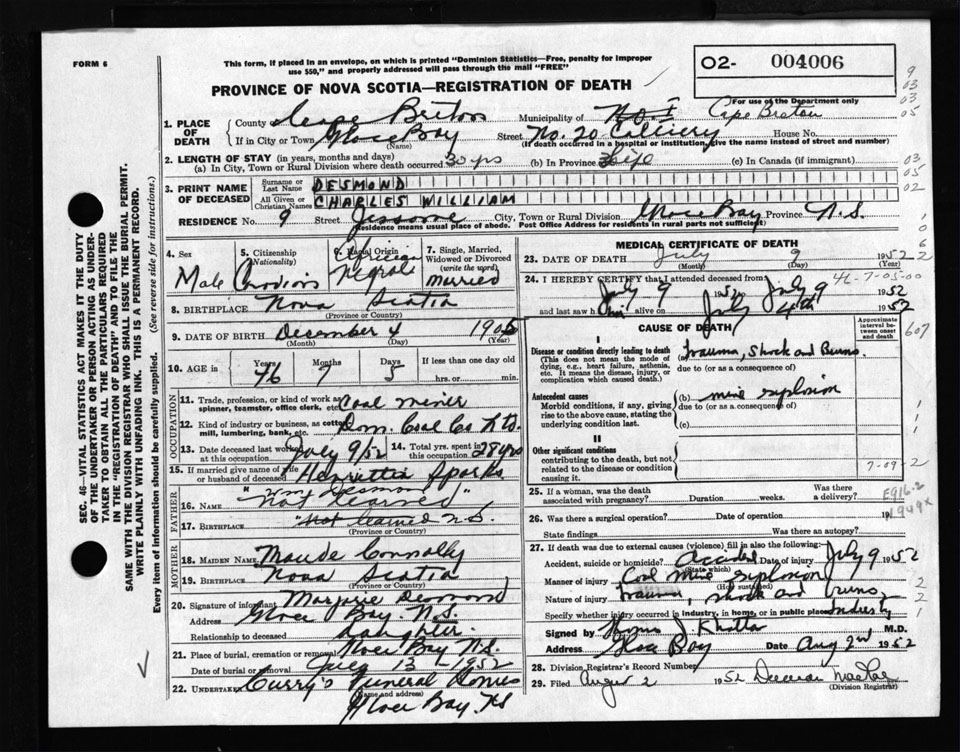 FORM 6
This form, if placed in an envelope, on which is printed "Dominion Statistics—Free, penalty for improper
use $50," and properly addressed will pass through the mail "FREE"
O2- 004006
PROVINCE OF NOVA SCOTIA—REGISTRATION OF DEATH
For use of the Department only
1. PLACE OF DEATH
County of Cape Breton Municipality of No. I Cape Breton
If in City or Town Glace Bay Street No. 20 Colliery House No.
(Name) (If death occurred in a hospital or institution, give the name instead of street and number)
2. LENGTH OF STAY (in years, months and days)
(a) In City, Town or Rural Division where death occurred 30 yrs (b) In Province Life (c) In Canada (if immigrant)
3. PRINT NAME OF DECEASED
Surname or Last Name DESMOND
All Given or Christian Names CHARLES WILLIAM
RESIDENCE No. 9 Street City, Town or Rural Division Glace Bay Province N.S.
Residence means usual place of abode. Post Office Address for residents in rural parts not sufficient)
4. Sex Male
5. Citizenship (Nationality) Canadian
6. Racial Origin
7. Single, Married, Widowed or Divorced (write the word) Married
8. BIRTHPLACE Nova Scotia
(Province or Country)
9. DATE OF BIRTH December 4 1905
(Month) (Day) (Year)
10. AGE in Years 46 Months 7 Days 5 If less than one day old
hrs. or min.
OCCUPATION
11. Trade, profession, or kind of work as spinner, teamster, office clerk, etc. Coal Miner
12. Kind of industry or business, as cotton mill, lumbering, bank, etc. Dom. Coal Co Ltd.
13. Date deceased last worked at this occupation July 9/52 14. Total yrs. spent in this occupation 28 yrs
15. If married give name of wife or husband of deceased Henrietta Sparks
FATHER
16. NAME "Wm Desmond" "Not learned"
17. BIRTHPLACE "Not learned N.S.
(Province or Country)
MOTHER
18. MAIDEN NAME Maude Connolly
19. BIRTHPLACE Nova Scotia
(Province or Country)
20. Signature of informant Marjorie Desmond
Address Glace Bay, N.S.
Relationship to deceased daughter.
21. Place of burial, cremation or removal Glace Bay N.S.
Date of burial or removal July 13 - 1952
22. UNDERTAKER Curry's Funeral Homes
(Name and address)
Glace Bay NS
MEDICAL CERTIFICATE OF DEATH
23. DATE OF DEATH July 9 1952
(Month) (Day) (Year)
24. I HEREBY CERTIFY that I attended deceased from 4L-7-05-00
July 9 1952 July 9 1952
and last saw him alive on July 9th 1952
CAUSE OF DEATH
Approximate interval between onset and death
I
Disease or condition directly leading to death
(This does not mean the mode of dying, e.g., heart failure, asthenia, etc. It means the disease, injury, or complication which caused death).
(a) Trauma, Shock and Burns.
due to (or as a consequence of)
Antecedent causes
Morbid conditions, if any, giving rise to the above cause, stating the underlying condition last.
(b) mine explosion
due to (or as a consequence of)
(c)
II
Other significant conditions
contributing to the death, but not related to the disease or condition causing it.
7-09-2
25. If a woman, was the death associated with pregnancy? Duration weeks. Was there a delivery?
E916.2
26. Was there a surgical operation? Date of operation 19
State findings Was there an autopsy?
27. If death was due to external causes (violence) fill in also the following:
Accident, suicide or homicide? Accident Date of injury July 9 1952
(State which)
Manner of injury Coal mine explosion
(How sustained)
Nature of injury Trauma, shock and burns
Specify whether injury occurred in industry, in home, or in public place Industry
Signed by M.D.
Address Glace Bay Date Aug 2nd 1952
28. Division Registrar's Record Number
29. Filed August 2 1952
(Division Registrar)
SEC. 46—VITAL STATISTICS ACT MAKES IT THE DUTY
OF THE UNDERTAKER OR PERSON ACTING AS UNDER-
TAKER TO OBTAIN ALL THE PARTICULARS REQUIRED
IN THE "REGISTRATION OF DEATH" AND TO FILE THE
SAME WITH THE DIVISION REGISTRAR WHO SHALL ISSUE THE BURIAL PERMIT.
WRITE PLAINLY WITH UNFADING INK. THIS IS A PERMANENT RECORD.
Every item of information should be carefully supplied. (See reverse side for instructions.)